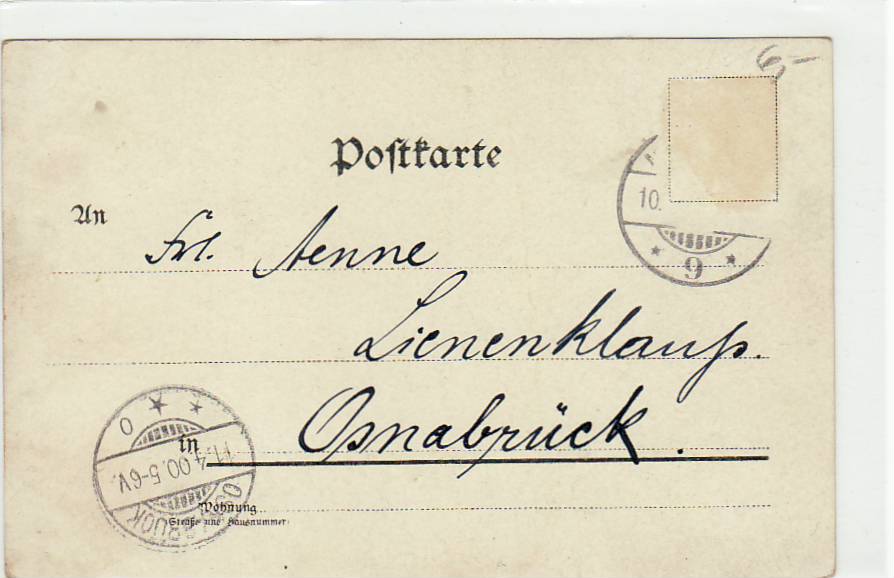 6,-
Postkarte
10.
9
An
Frl. Aenne
Lienenklauß.
in Osnabrück.
Wohnung
Straße und Hausnummer
OSNABRÜCK
11.4.00.5-6V.
O